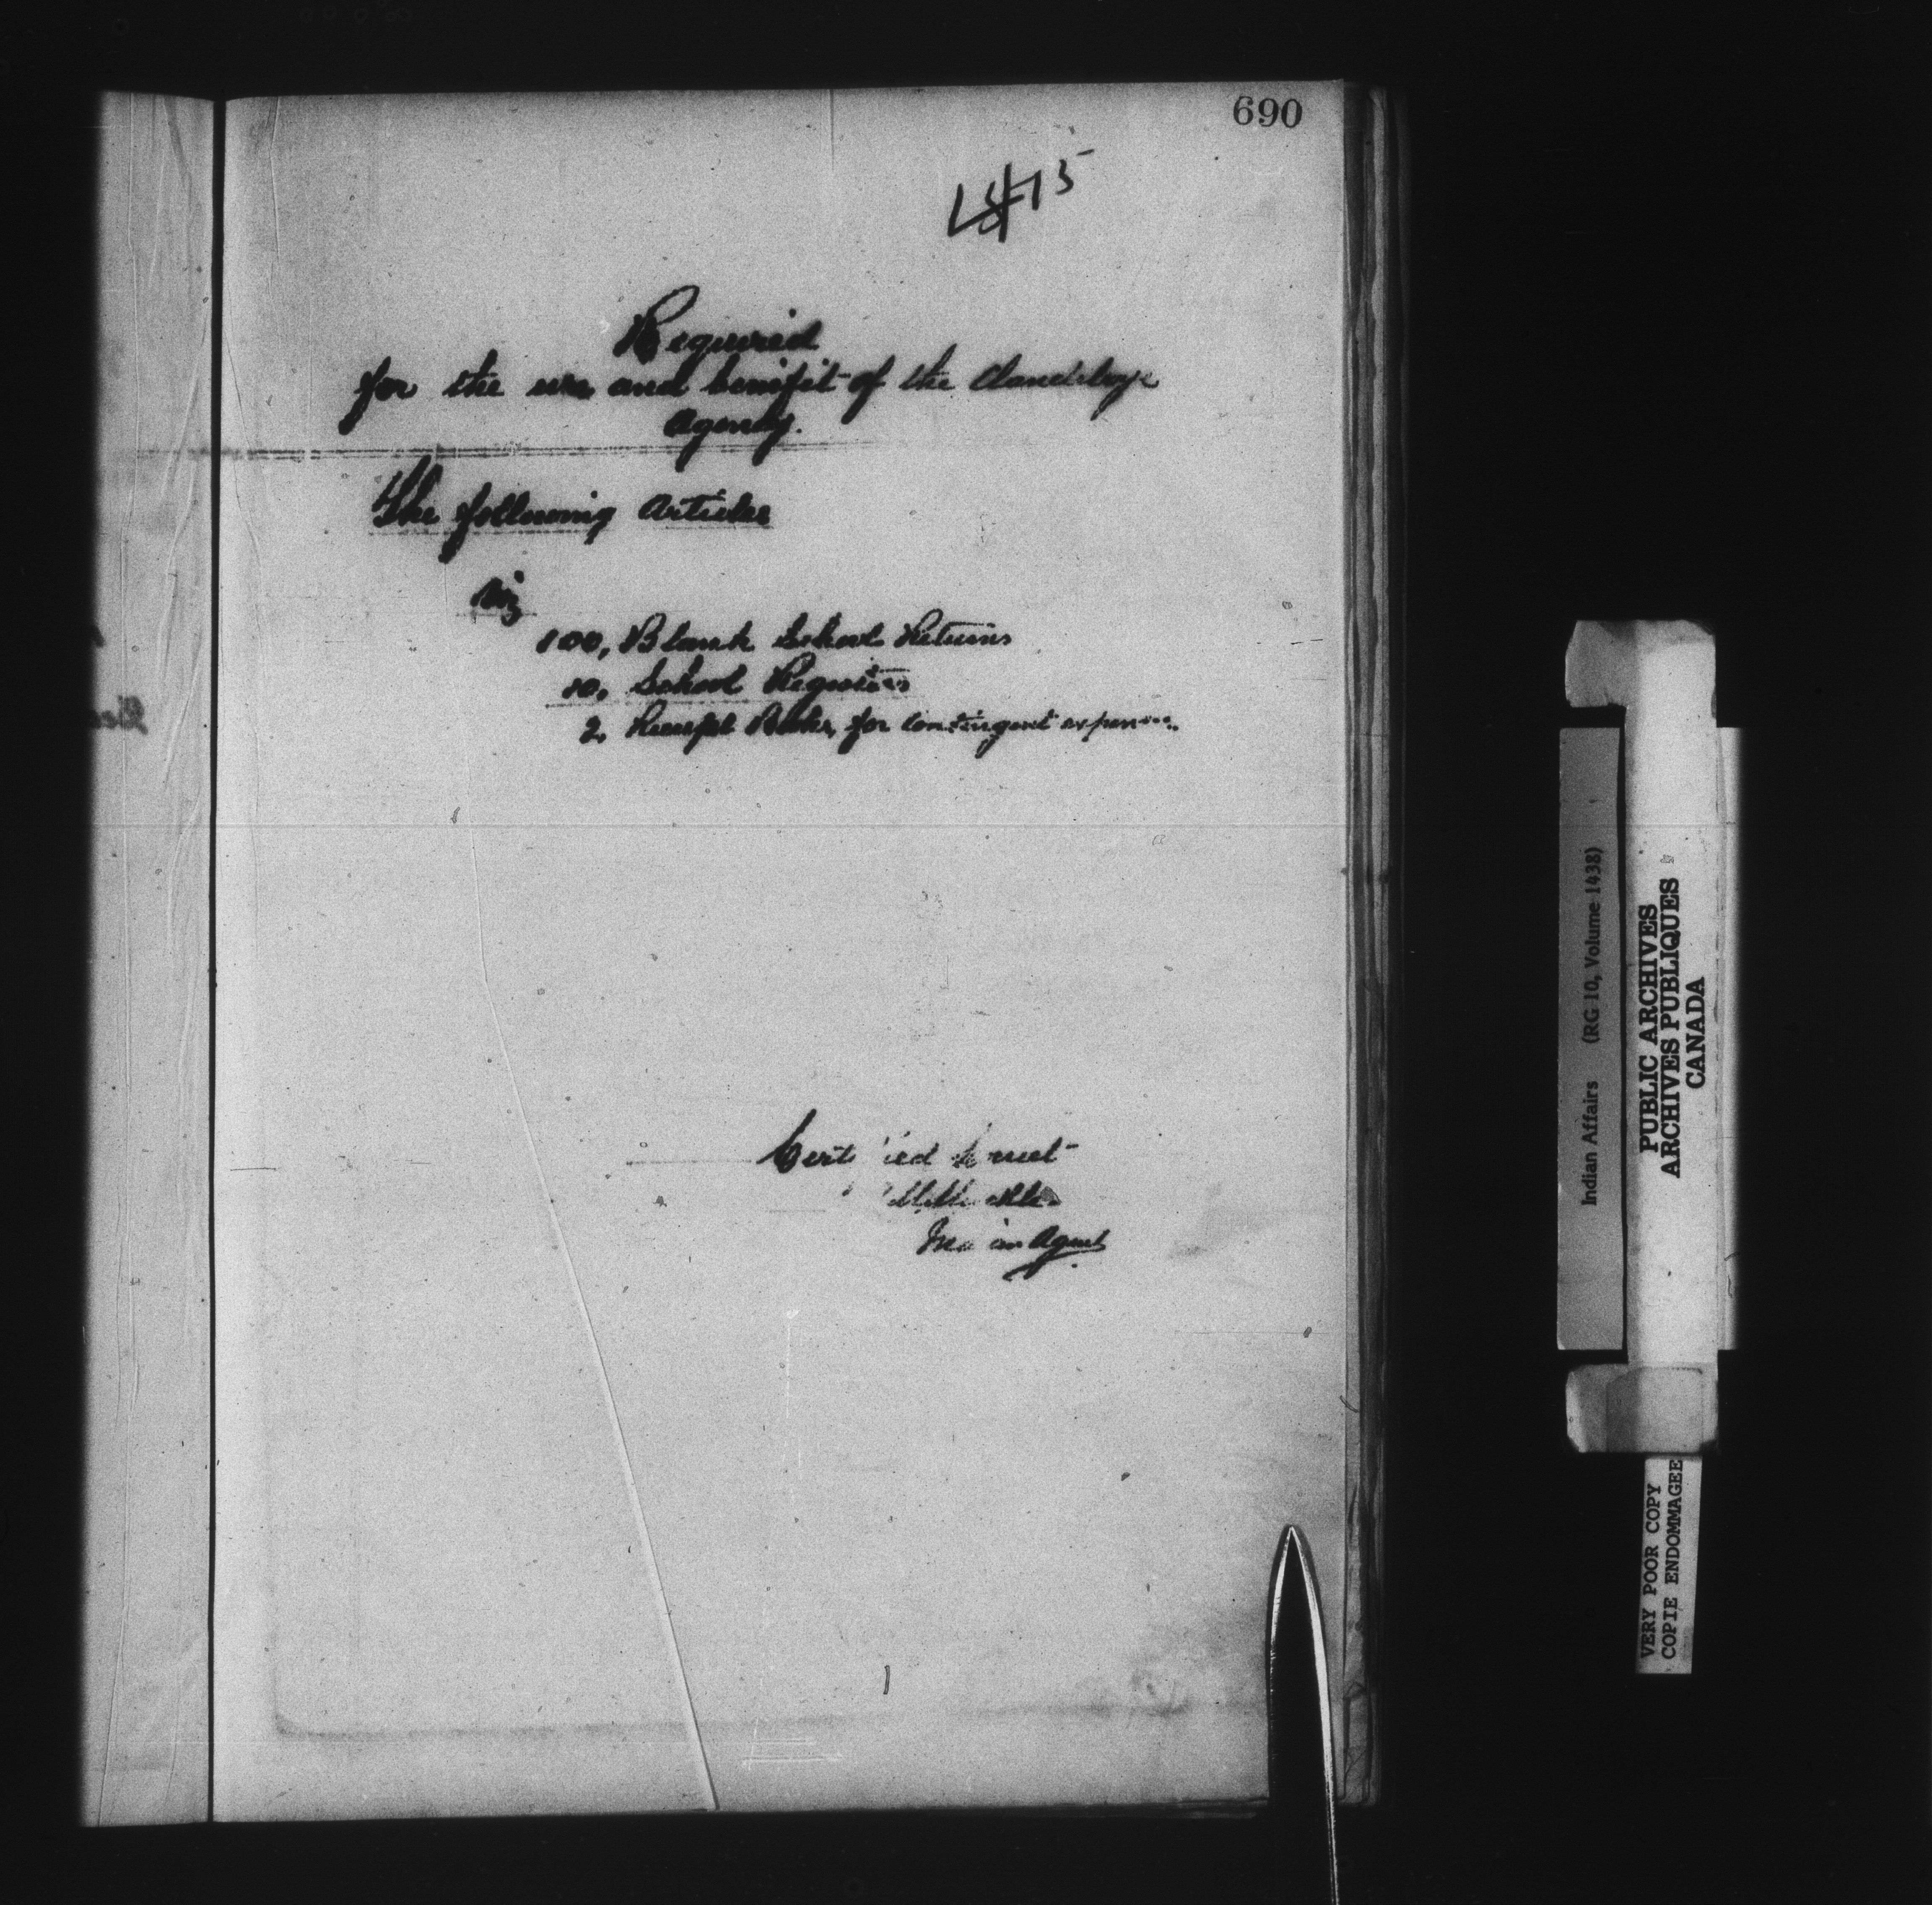 690
Required
for the use and benefit of the Clandeboye
Agency.
The following Articles
Viz
100, Blank School Returns
20. School Registers
2. Receipt Books, for Contingent expenses.
Certified Correct
Indian Agent
Indian Affairs (RG 10, Volume 1438)
PUBLIC ARCHIVES
ARCHIVES PUBLIQUES
CANADA
VERY POOR COPY
COPIE ENDOMMAGEE